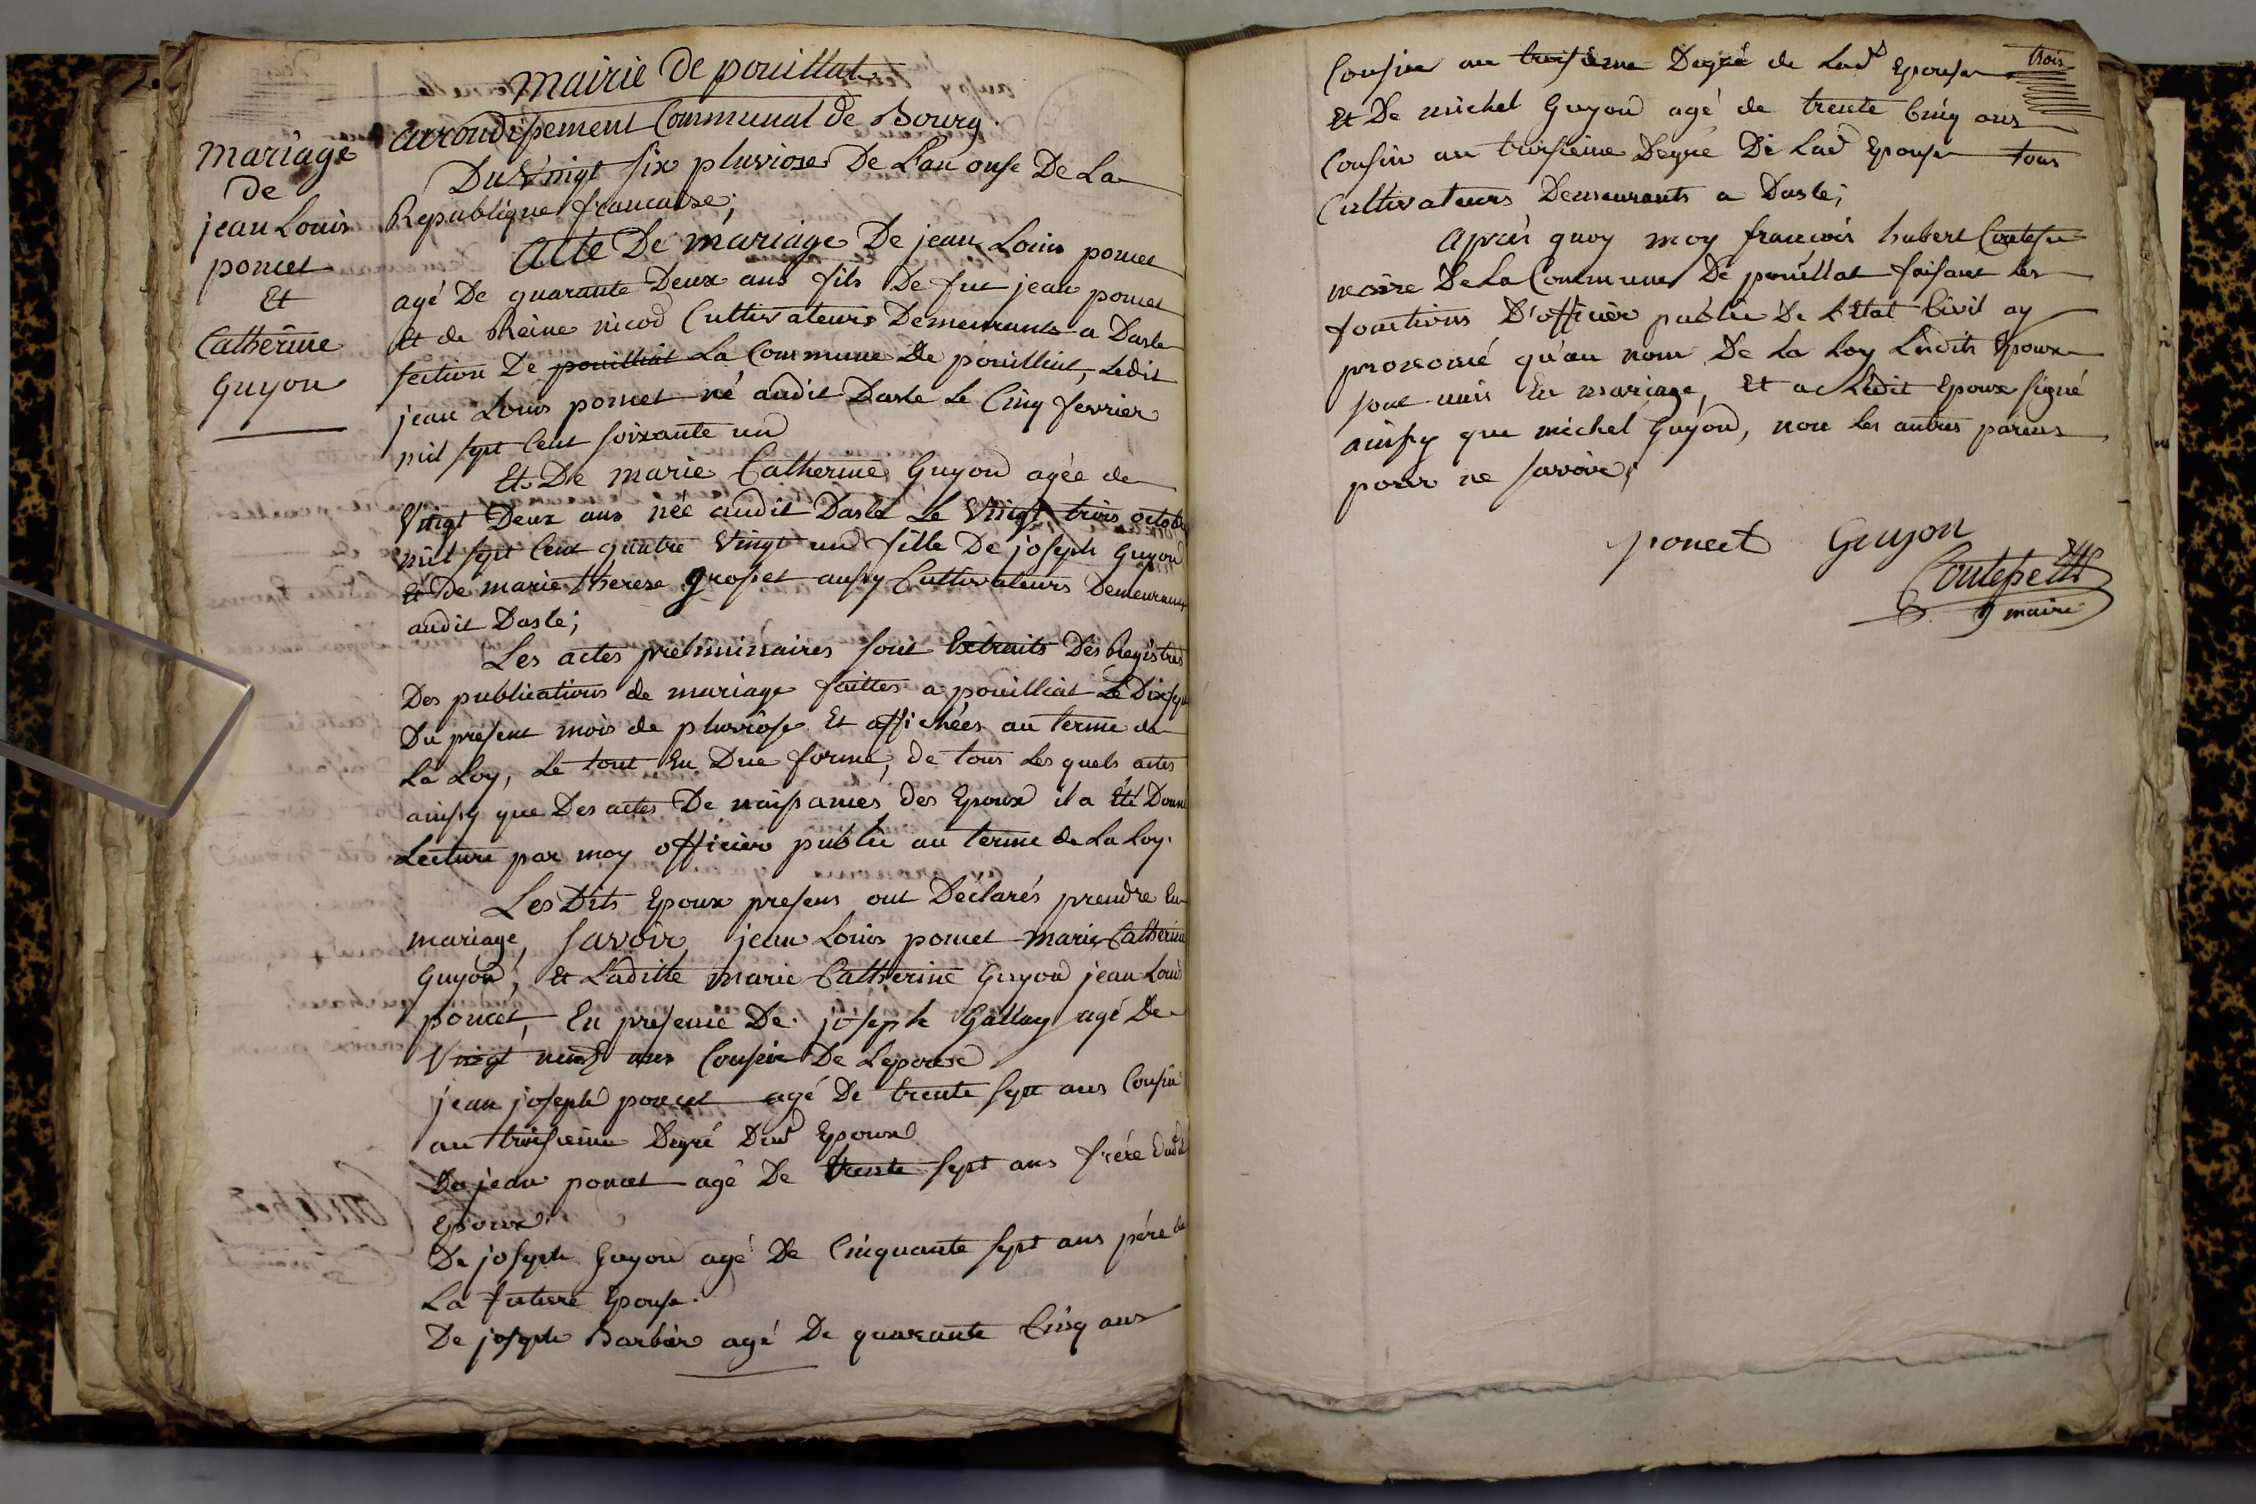 mariage
de
jean Louis
poncet
Et
Catherine
guyon
mairie de pouillat
arrondissement Communal de Bourg.
Du vingt six pluviose De L'an onse De La
Republique francaise;
Acte De mariage De jean Louis poncet
agé De quarante Deux ans fils De fut jean poncet
Et de Reine nicod Cultivateurs Demeurants a Dasle
section De pouilliat La Commune De pouilliat, Ledit
jean Louis poncet né audit Dasle Le Cinq fevrier
mil sept Cent soixante un
Et De marie Catherine Guyon agée de
Vingt Deux ans née audit Dasle Le Vingt trois octobre
mil sept Cent quatre Vingt un fille De joseph guyon
Et De marie therese grosset aussy Cultivateurs Demeurants
audit Dasle;
Les actes preliminaires sont Extraits Des Registres
Des publications de mariage faittes a pouilliat Le Dix sept
Du present mois de pluviôse Et affichées au terme de
La Loy, Le tout En Due forme, de tous Les quels actes
ainsy que Des actes De naissances des Epoux il a Eté Donné
Lecture par moy officier public au terme de La Loy.
Les Dits Epoux presens ont Déclarés prendre En
mariage, savoir jean Louis poncet marie Catherine
guyon, Et Laditte marie Catherine Guyon jean Louis
poncet, En presence De joseph Gallay agé De
Vingt neuf ans Cousin De Lepoux
jean joseph poncet agé De trente sept ans Cousin
au troisieme Degré Dud Epoux
De jean poncet agé De trente sept ans frére Dudt
Epoux.
De joseph Guyon agé De Cinquante sept ans pére de
La future Epouse.
De joseph Barbier agé De quarante Cinq ans
Cousin au troisieme Degré de Lad Epouse trois
Et De michel Guyon agé de trente Cinq ans
Cousin au troisieme Degré De Lad Epouse tous
Cultivateurs Demeurants a Dasle;
Après quoy moy francois hubert Contepe
maire De La Commune De pouillat faisant Les
fonctions D'officier public De L'Etat Civil ay
prononcé qu'au nom De La Loy Lesdits Epoux
sont unis En mariage, Et a Ledit Epoux signé
ainsy que michel Guyon, non Les autres parens
pour ne savoir;
poncet Guyon
maire